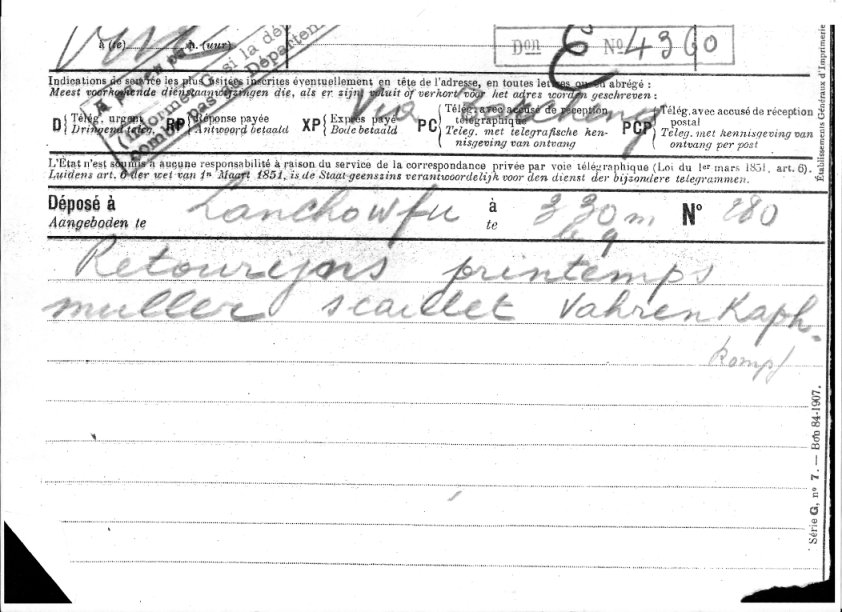 à (te) h. (uur)
Don E No 4360
A
(Informer G si la dé
Départen
Indications de service les plus usitées inscrites éventuellement en tête de l'adresse, en toutes lettres ou en abrégé :
Meest voorkomende dienstaanwijzingen die, als er zijn, voluit of verkort vóór het adres worden geschreven:
Via
D { Télég. urgent Dringend teleg.
RP { Réponse payée Antwoord betaald
XP { Exprès payé Bode betaald
PC { Télég. avec accusé de réception télégraphique Teleg. met telegrafische kennisgeving van ontvang
PCP { Télég. avec accusé de réception postal Teleg. met kennisgeving van ontvang per post
L'État n'est soumis à aucune responsabilité à raison du service de la correspondance privée par voie télégraphique (Loi du 1er mars 1851, art. 6).
Luidens art. 6 der wet van 1n Maart 1851, is de Staat geenszins verantwoordelijk voor den dienst der bijzondere telegrammen.
Déposé à Lanchowfu à 3 30 m N° 280
Aangeboden te te 9
Retourijns printemps
muller scaillet Vahrenkaph-
kampf
Établissements Généraux d'Imprimerie
Série G, n° 7. — Bdb 84-1907.